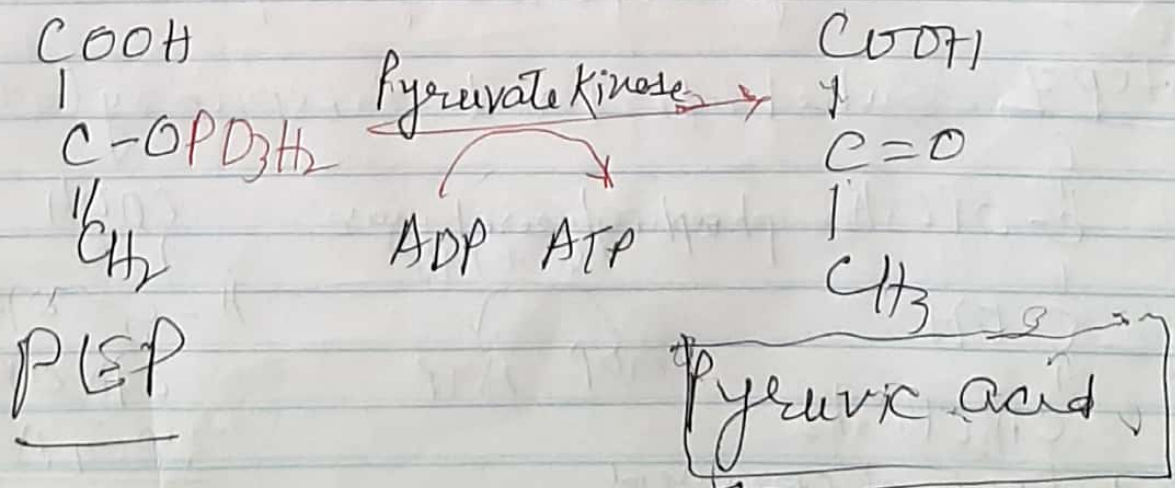 COOH
|
C-OPO3H2
||
CH2
PEP
Pyruvate Kinase
ADP ATP
COOH
|
C=O
|
CH3
Pyruvic acid